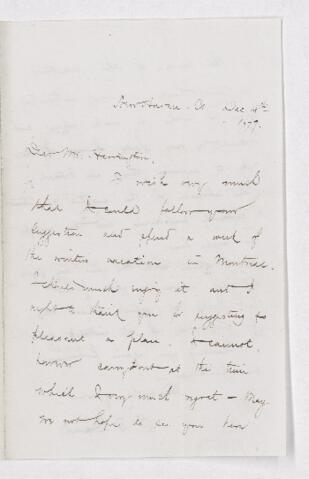 New Haven. Ct Dec 4th
1879.
Dear Mr. Harrington,
I wish very much
that I could follow your
suggestion and spend a week of
the winter vacation in Montreal.
I should much enjoy it and I
ought to thank you for suggesting so
pleasant a plan. I cannot,
however at the time
which I very much regret - May
we not hope to see you here